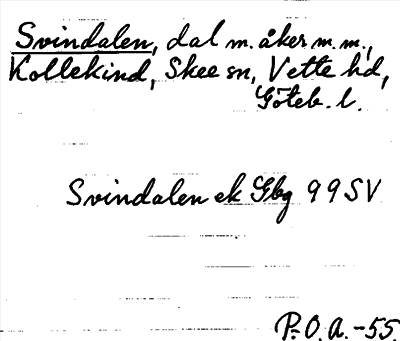 Svindalen, dal m. åker m.m.,
Kollekind, Skee sn, Vette hd,
Göteb. l.
Svindalen ek Gbg 99SV
P.O.A.-55.